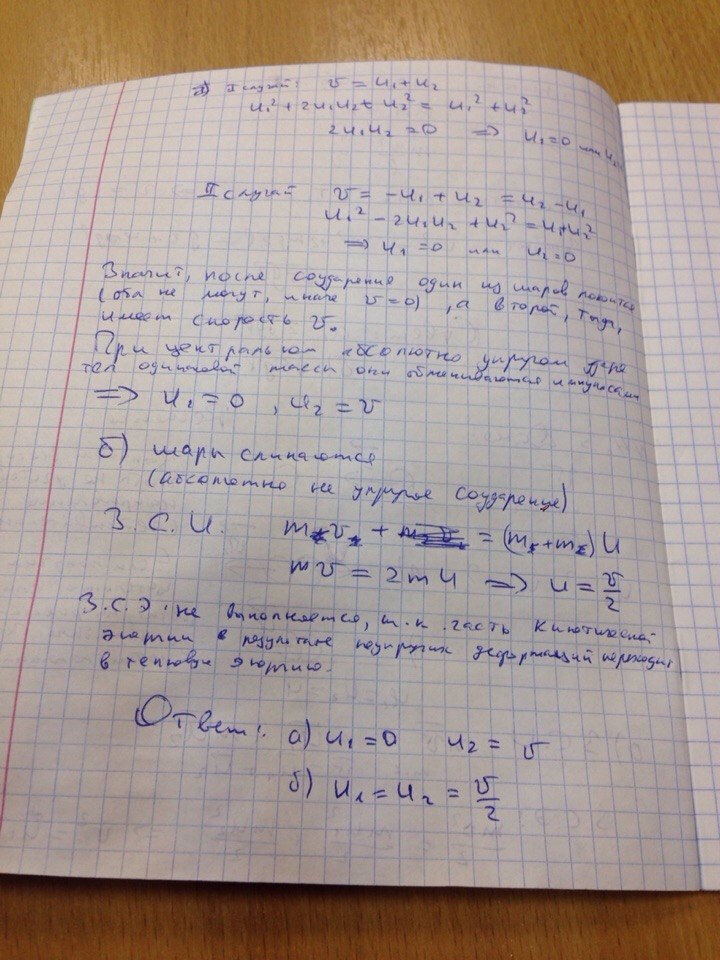 I случай: v = u₁ + u₂
u₁² + 2u₁u₂ + u₂² = u₁² + u₂²
2u₁u₂ = 0 ⇒ u₁ = 0 или
II случай v = -u₁ + u₂ = u₂ - u₁
u₁² - 2u₁u₂ + u₂² = u₁² + u₂²
⇒ u₁ = 0 или u₂ = 0
Значит, после соударения один из шаров покоится
(оба не могут, иначе v = 0), а второй, тогда,
имеет скорость v.
При центральном абсолютно упругом ударе
тел одинаковой массы они обмениваются импульсами
⇒ u₁ = 0, u₂ = v
б) шары слипаются
(абсолютно не упругое соударение)
З.С.И. mv + = (m + m)u
mv = 2mu ⇒ u = v/2
З.С.Э. не выполняется, т.к. часть кинетической
энергии в результате неупругих деформаций переходит
в тепловую энергию.
Ответ: а) u₁ = 0 u₂ = v
б) u₁ = u₂ = v/2